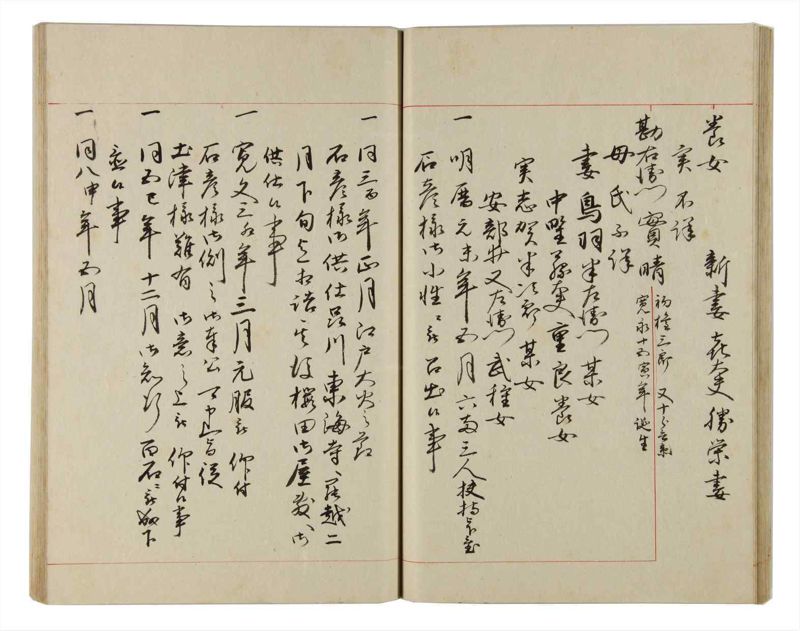 養女 新妻㐂大夫勝栄妻
実不詳
勘右衛門實晴
初権三郎 又十
寛永十五寅年誕生
母氏不詳
妻鳥羽半左衛門某女
中野 重良養女
実志賀半次郎某女
安部井又左衛門武種女
一明暦元未年五月六両三人扶持
石彦様御小性ニ被 召出候事
一同三酉年正月江戸大火之節
石彦様御供仕品川東海寺ヘ罷越二
月下旬迄相詰其後櫻田御屋敷ヘ御
供仕候事
一寛文三卯年三月元服被 仰付
石彦様御側之御奉公 可申旨従
土津様難有 御意之上被 仰付候事
一同五巳年十二月御知行百石ニ被成下
候事
一同八申年五月